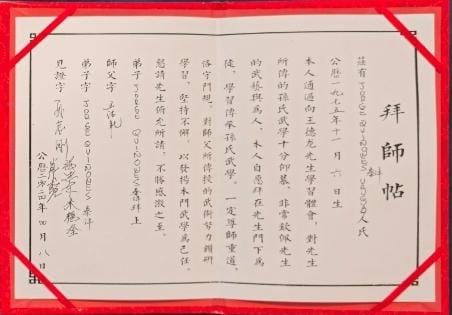 拜師帖
茲有 JORGE 泰洋 人氏
公曆一九七五年十一月六日生
本人通過向王德龙先生學習體會，對先生
所傳的孫氏武學十分仰慕，非常欽佩先生
的武藝與為人，本人自愿拜在先生門下為
徒，學習傳承孫氏武學。一定尊師重道，
恪守門規，對師父所傳授的武術努力鑽研
學習，堅持不懈，以發揚本門武學為己任。
懇請先生俯允所請，不勝感激之至。
弟子 JORGE 泰洋 拜上
師父字
弟子字 JORGE 泰洋
見證字
公曆二零二四年四月八日